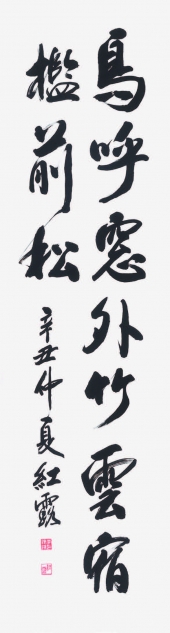 鳥呼窓外竹雲宿
檻前松
辛丑仲夏紅霞